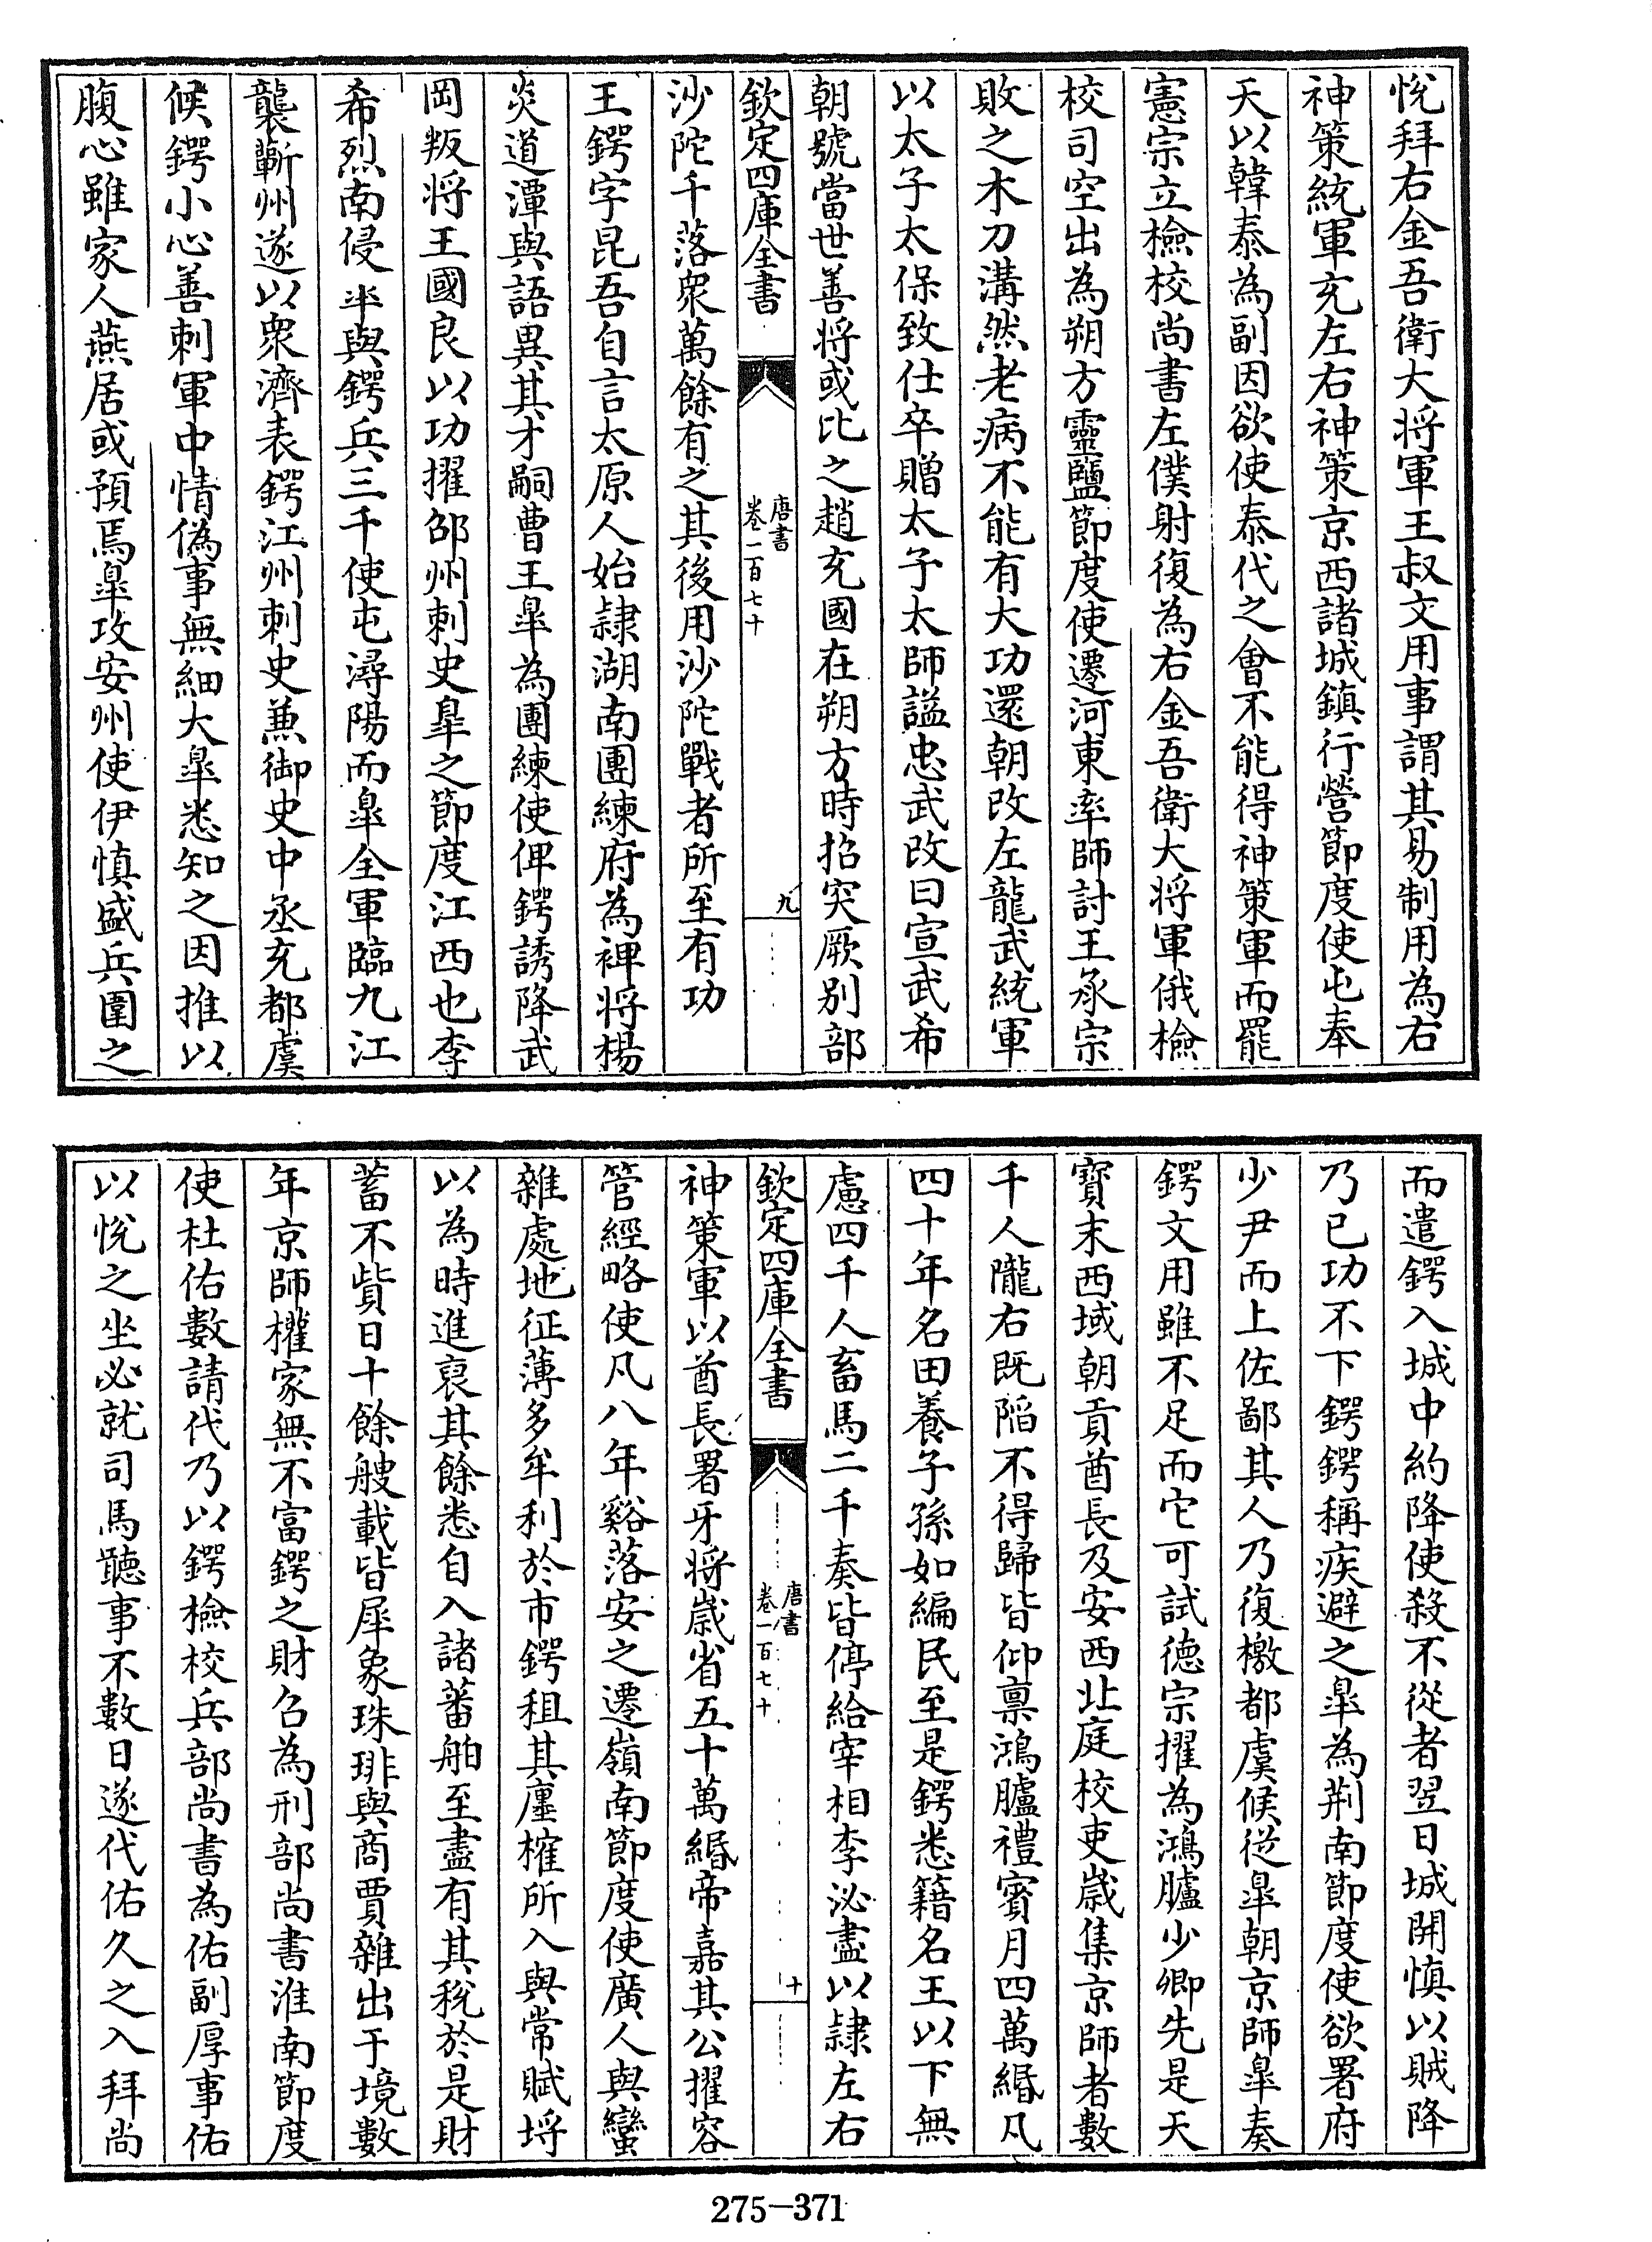 悅拜右金吾衛大将軍王叔文用事謂其易制用為右
神策統軍充左右神策京西諸城鎮行營節度使屯奉
天以韓泰為副因欲使泰代之會不能得神策軍而罷
憲宗立檢校尚書左僕射復為右金吾衛大将軍俄檢
校司空出為朔方靈鹽節度使遷河東率師討王承宗
敗之木刀溝然老病不能有大功還朝改左龍武統軍
以太子太保致仕卒贈太子太師諡忠武改曰宣武希
朝號當世善将或比之趙充國在朔方時招突厥別部
欽定四庫全書
唐書
卷一百七十
九
沙陀千落衆萬餘有之其後用沙陀戰者所至有功
王鍔字昆吾自言太原人始隷湖南團練府為裨将楊
炎道潭與語異其才嗣曹王臯為團練使俾鍔誘降武
岡叛将王國良以功擢邵州刺史臯之節度江西也李
希烈南侵半與鍔兵三千使屯潯陽而臯全軍臨九江
襲蘄州遂以衆濟表鍔江州刺史兼御史中丞充都虞
候鍔小心善刺軍中情偽事無細大臯悉知之因推以
腹心雖家人燕居或預焉臯攻安州使伊慎盛兵圍之
而遣鍔入城中約降使殺不從者翌日城開慎以賊降
乃已功不下鍔鍔稱疾避之臯為荆南節度使欲署府
少尹而上佐鄙其人乃復檄都虞候從臯朝京師臯奏
鍔文用雖不足而它可試德宗擢為鴻臚少卿先是天
寳末西域朝貢酋長及安西北庭校吏歲集京師者數
千人隴右既陷不得歸皆仰禀鴻臚禮賓月四萬緡凡
四十年名田養子孫如編民至是鍔悉籍名王以下無
慮四千人畜馬二千奏皆停給宰相李泌盡以隷左右
欽定四庫全書
唐書
卷一百七十
十
神策軍以酋長署牙将歲省五十萬緡帝嘉其公擢容
管經略使凡八年谿落安之遷嶺南節度使廣人與蠻
雜處地征薄多牟利於市鍔租其廛榷所入與常賦埒
以為時進裒其餘悉自入諸蕃舶至盡有其稅於是財
蓄不貲日十餘艘載皆犀象珠琲與商賈雜出于境數
年京師權家無不富鍔之財召為刑部尚書淮南節度
使杜佑數請代乃以鍔檢校兵部尚書為佑副厚事佑
以悅之坐必就司馬聽事不數日遂代佑久之入拜尚
275-371